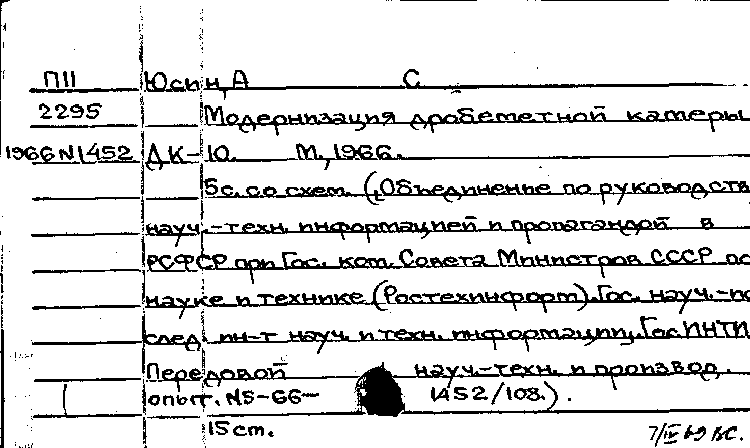 П11 Юсин, А С.
2295 Модернизация дробеметной камеры
1966 N1452 ДК-10. М., 1966.
5с. со схем. (Объединение по руководств
науч.-техн. информацией и пропагандой в
РСФСР при Гос. ком. Совета Министров СССР по
науке и технике (Ростехинформ). Гос. науч.-ис
след. ин-т науч. и техн. информации. Гос ИНТИ
Передовой науч.-техн. и производ.
опыт. N5-66- 1452/108.).
15 cm.